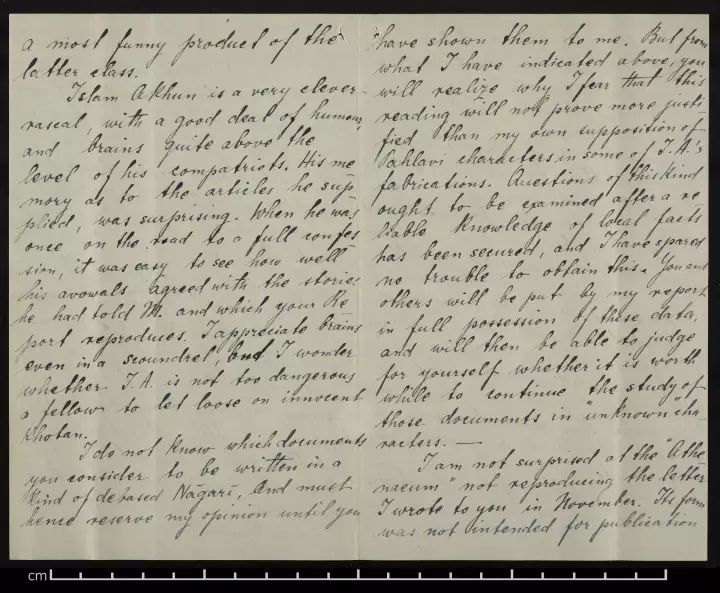 a most funny product of the
latter class.
Islam Akhun is a very clever
rascal, with a good deal of humour,
and brains quite above the
level of his compatriots. His me
mory as to the articles he sup
plied, was surprising. When he was
once on the road to a full confes
sion, it was easy to see how well
his avowals agreed with the stories
he had told M. and which your Re
port reproduces. I appreciate brains
even in a scoundrel, and I wonder
whether I.A. is not too dangerous
a fellow to let loose on innocent
Khotan.
I do not know which documents
you consider to be written in a
kind of debased Nāgarī, and must
hence reserve my opinion until you
have shown them to me. But from
what I have indicated above, you
will realize why I fear that this
reading will not prove more justi
fied than my own supposition of
Pahlavi characters in some of I.A.'s
fabrications. Questions of this kind
ought to be examined after a re
liable knowledge of local facts
has been secured, and I have spared
no trouble to obtain this. You and
others will be put by my report
in full possession of these data,
and will then be able to judge
for yourself whether it is worth
while to continue the study of
those documents in "unknown" cha
racters. —
I am not surprised at the "Athe
naeum" not reproducing the letter
I wrote to you in November. Its form
was not intended for publication
cm